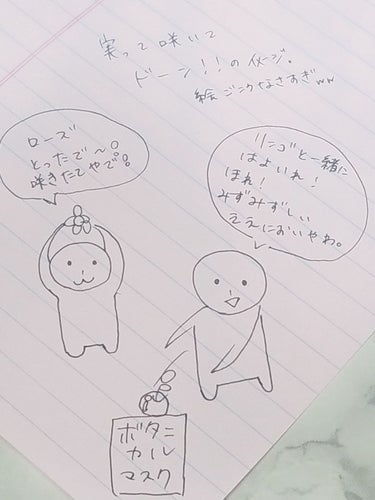 実って咲いて
ドーン!!のイメージ。
絵ごころなさすぎww
ローズ
とったで〜。
咲きたてやで。
リンゴと一緒に
はよいれ!
ほれ!
みずみずしい
ええにおいやわ。
ボタニ
カル
マスク